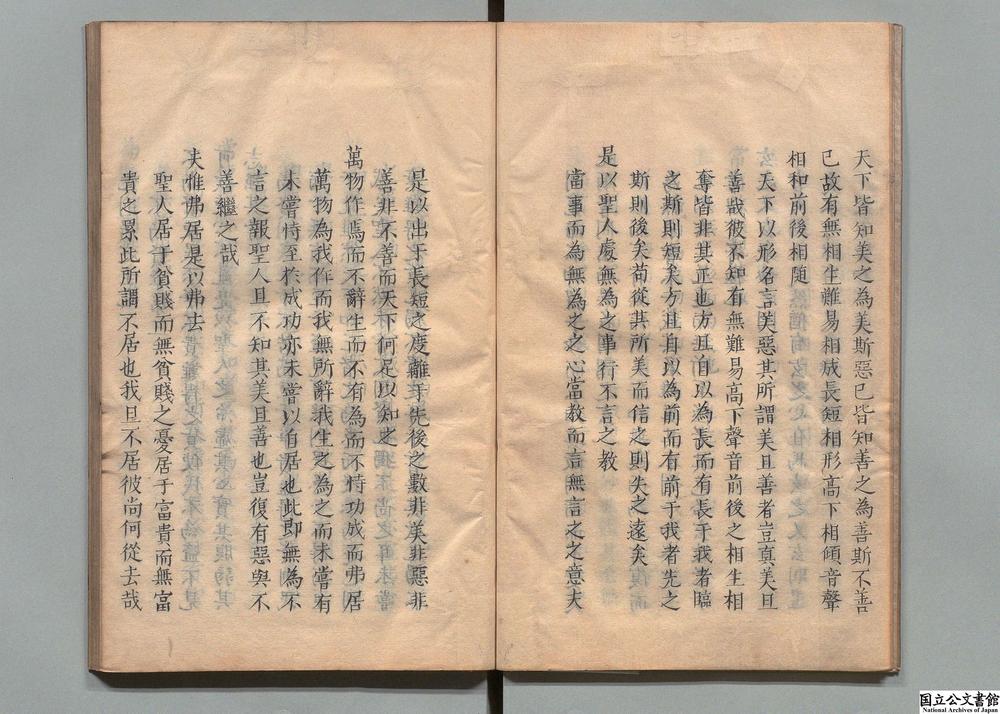 天下皆知美之為美斯惡已皆知善之為善斯不善
已故有無相生難易相成長短相形高下相傾音聲
相和前後相隨
天下以形名言美惡其所謂美且善者豈真美且
善哉彼不知有無難易高下聲音前後之相生相
奪皆非其正也方且自以為長而有長于我者臨
之斯則短矣方且自以為前而有前于我者先之
斯則後矣苟從其所美而信之則失之遠矣
是以聖人處無為之事行不言之教
當事而為無為之之心當教而言無言之之意夫
是以出于長短之度離于先後之數非美非惡非
善非不善而天下何足以知之
萬物作焉而不辭生而不有為而不恃功成而弗居
萬物為我作而我無所辭我生之為之而未嘗有
未嘗恃至於成功亦未嘗以自居也此即無為不
言之報聖人且不知其美且善也豈復有惡與不
善繼之哉
夫惟弗居是以弗去
聖人居于貧賤而無貧賤之憂居于富貴而無富
貴之累此所謂不居也我且不居彼尚何從去哉
国立公文書館
National Archives of Japan